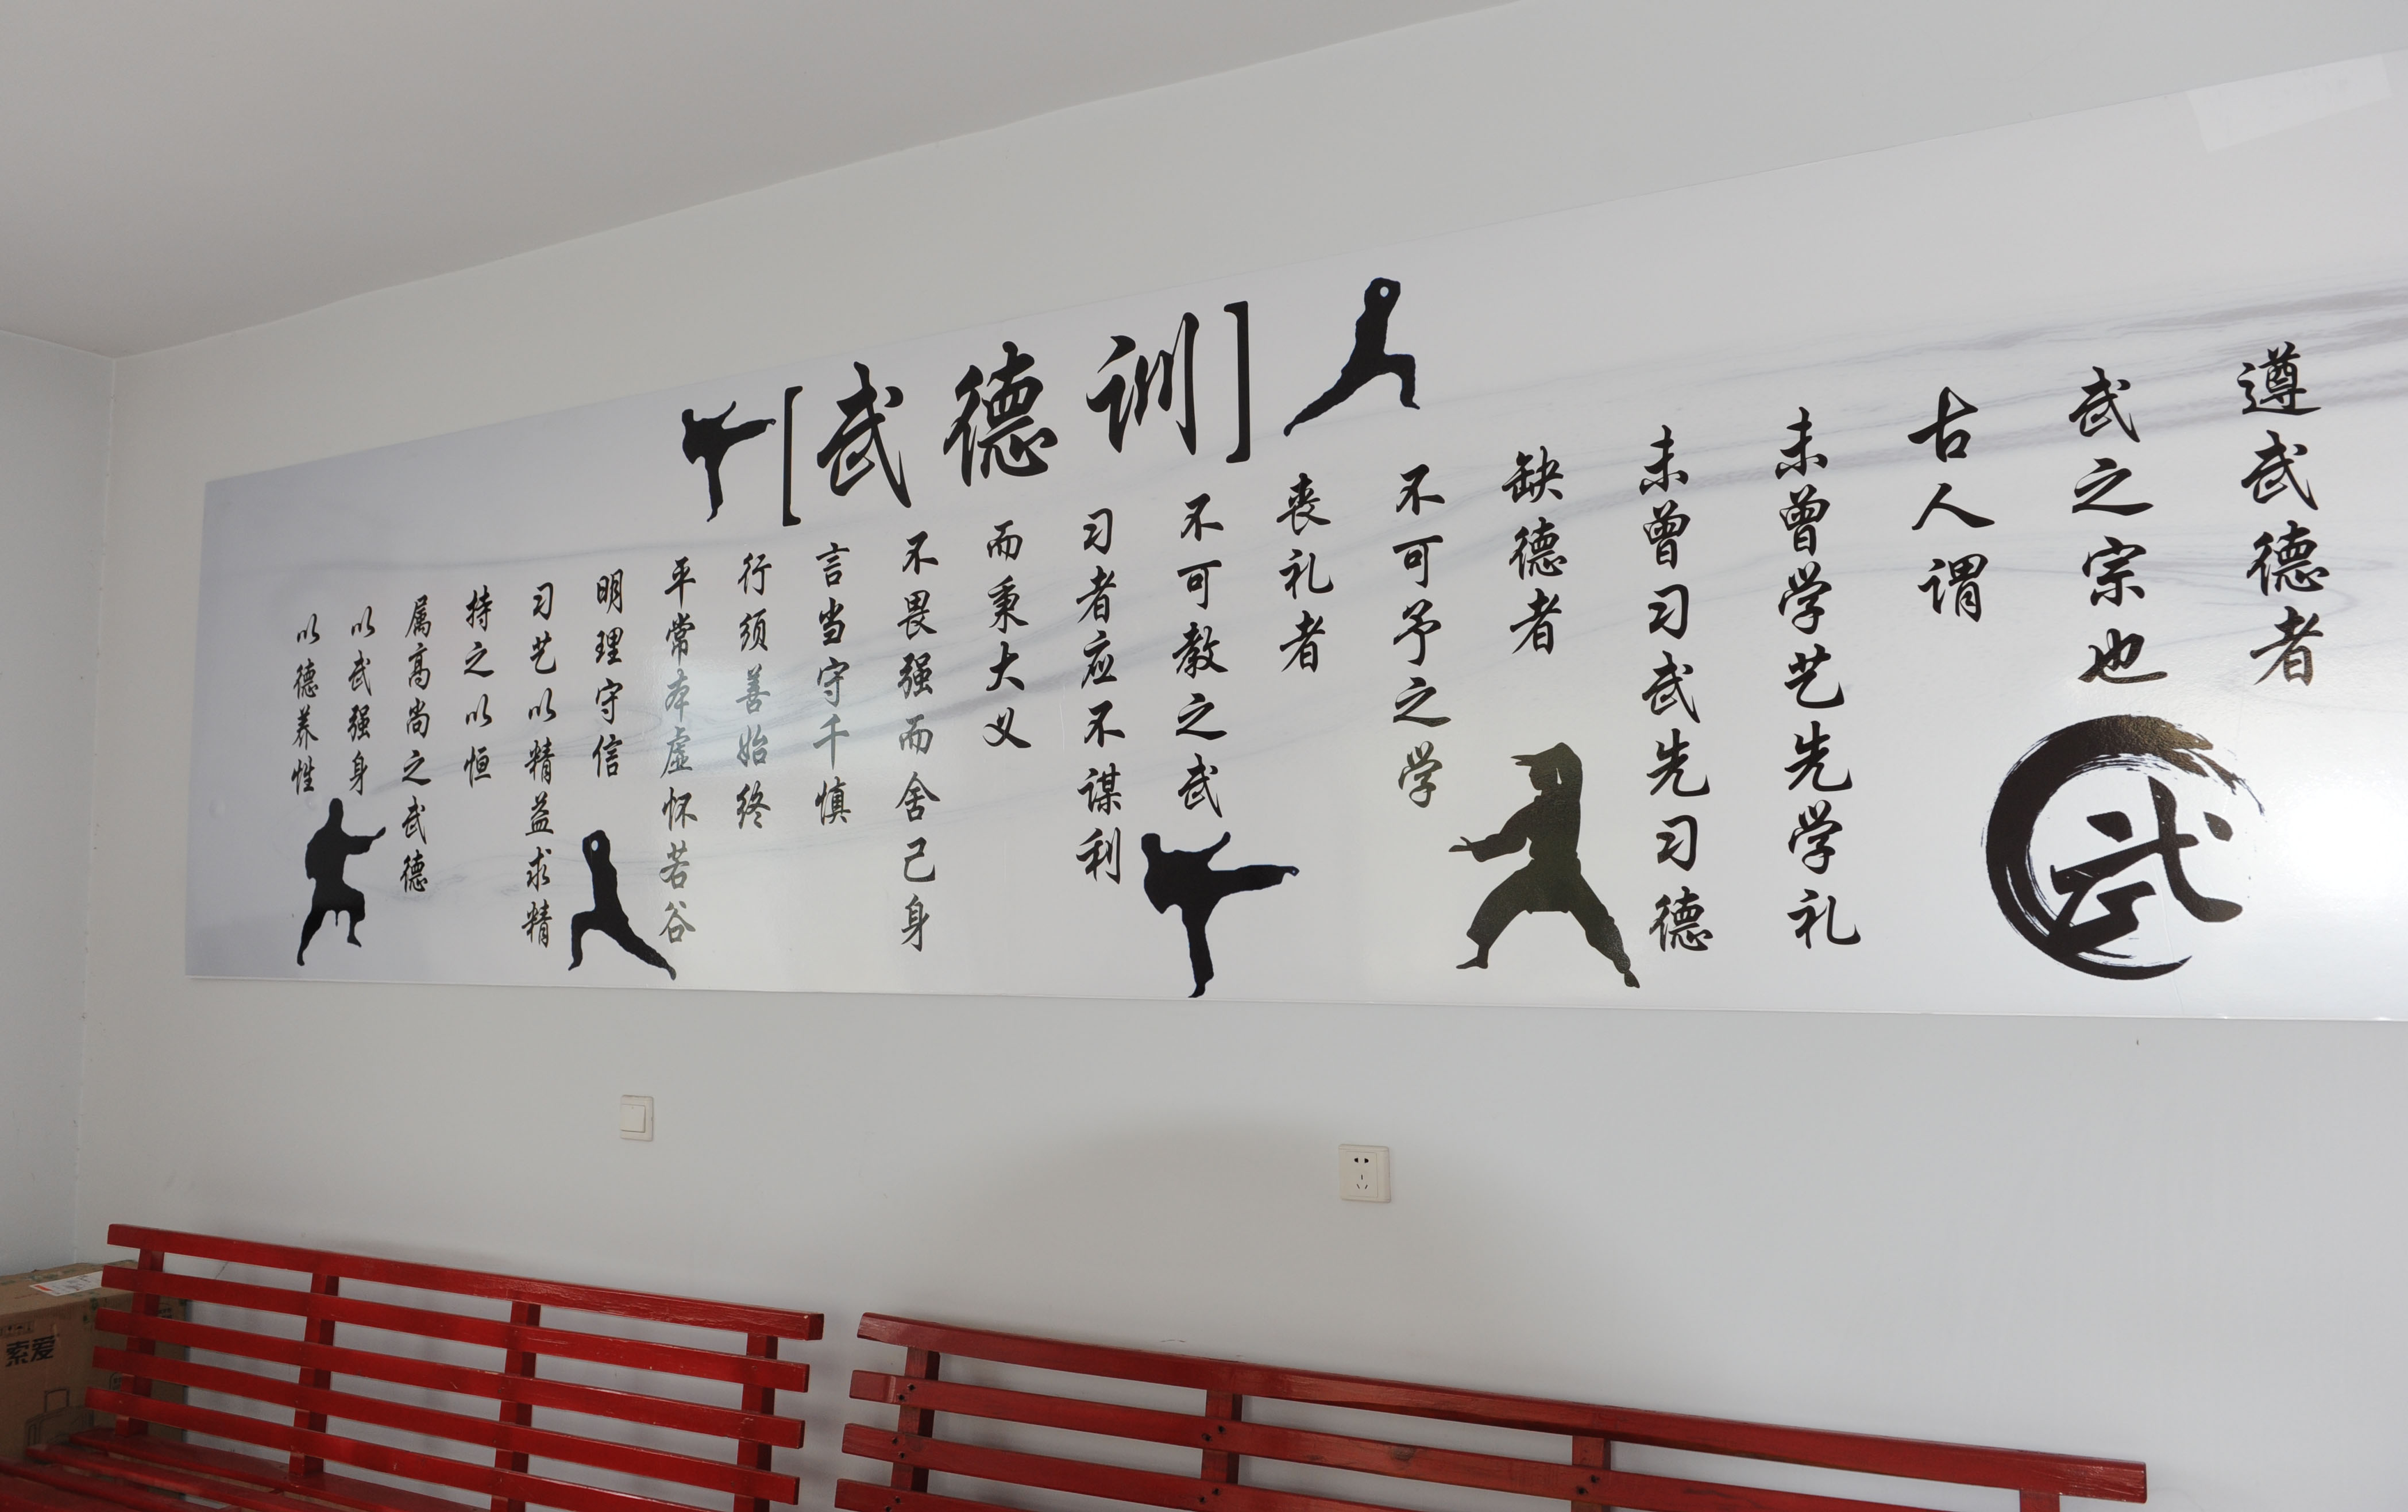 武德训
遵武德者
武之宗也
古人谓
未曾学艺先学礼
未曾习武先习德
缺德者
不可予之学
丧礼者
不可教之武
习者应不谋利
而秉大义
不畏强而舍己身
言当守千慎
行须善始终
平常本虚怀若谷
明理守信
习艺以精益求精
持之以恒
属高尚之武德
以武强身
以德养性
武
索爱